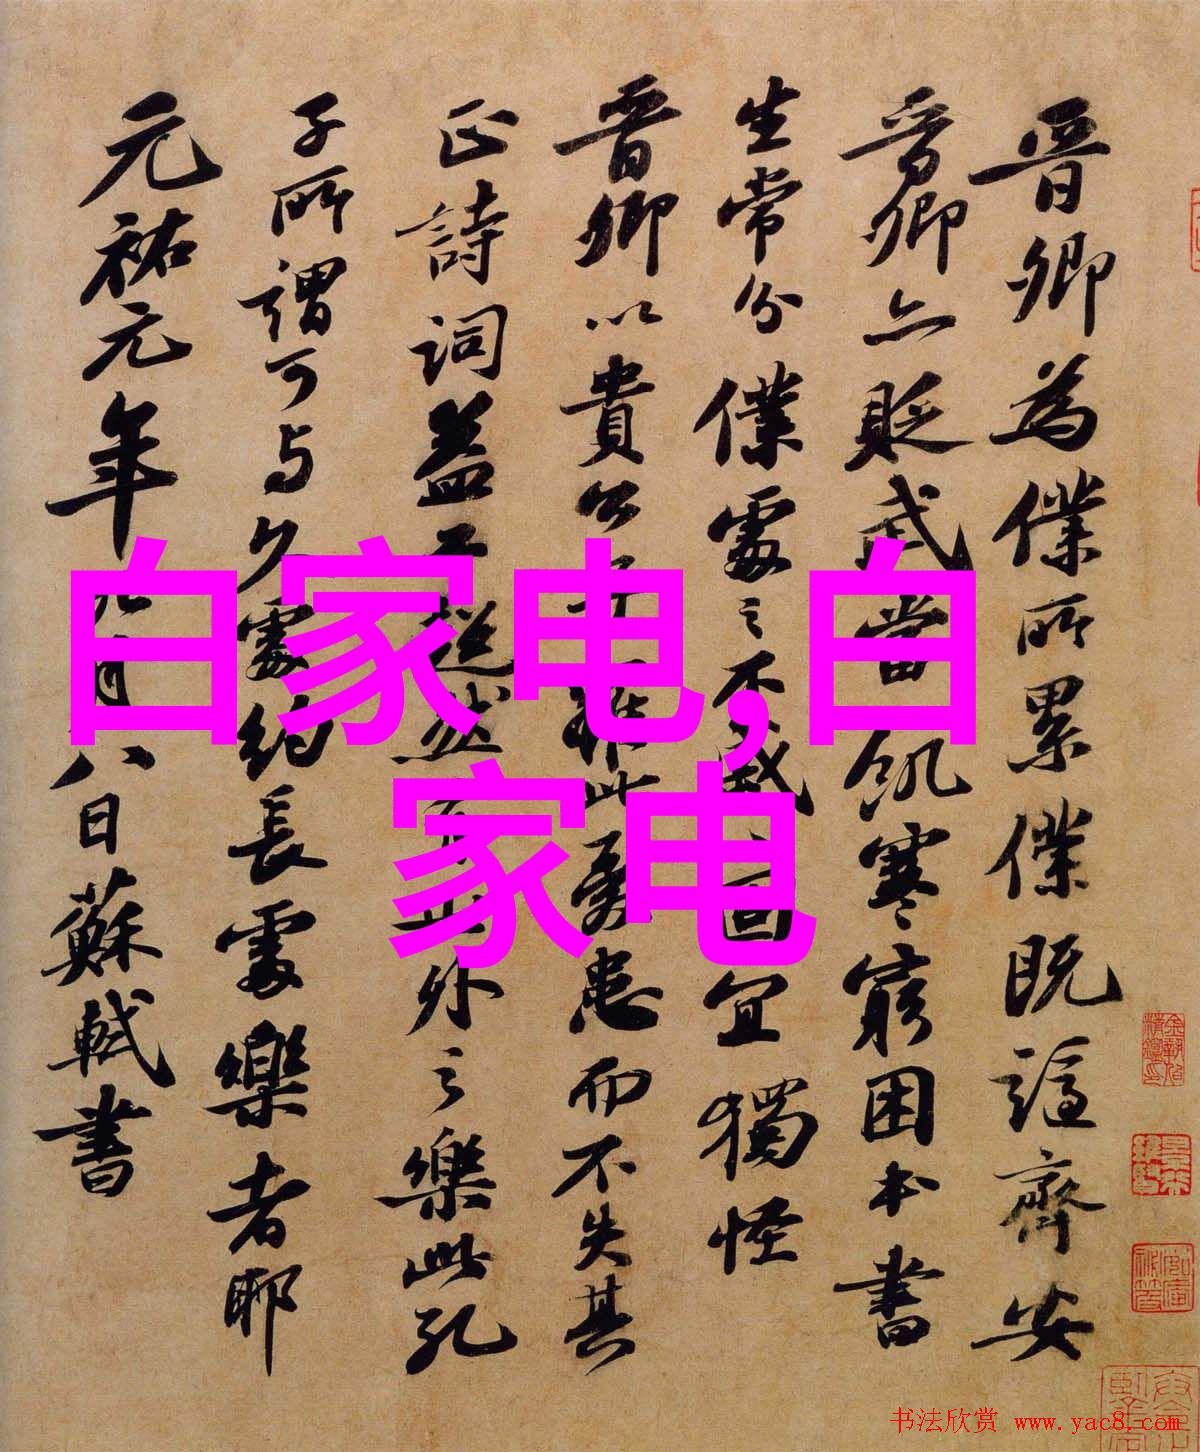 晉卿為僕所累僕既謫齊安
晉卿亦貶武當飢寒窮困本書
生常分僕處之不戚固宜獨怪
晉卿以貴公子罹此憂患而不失其
正詩詞益工超然世外之樂此孔
子所謂可与久處約長處樂者耶
元祐元年九月八日蘇軾書
白家电,白
家电
书法欣赏 www.yac8.com